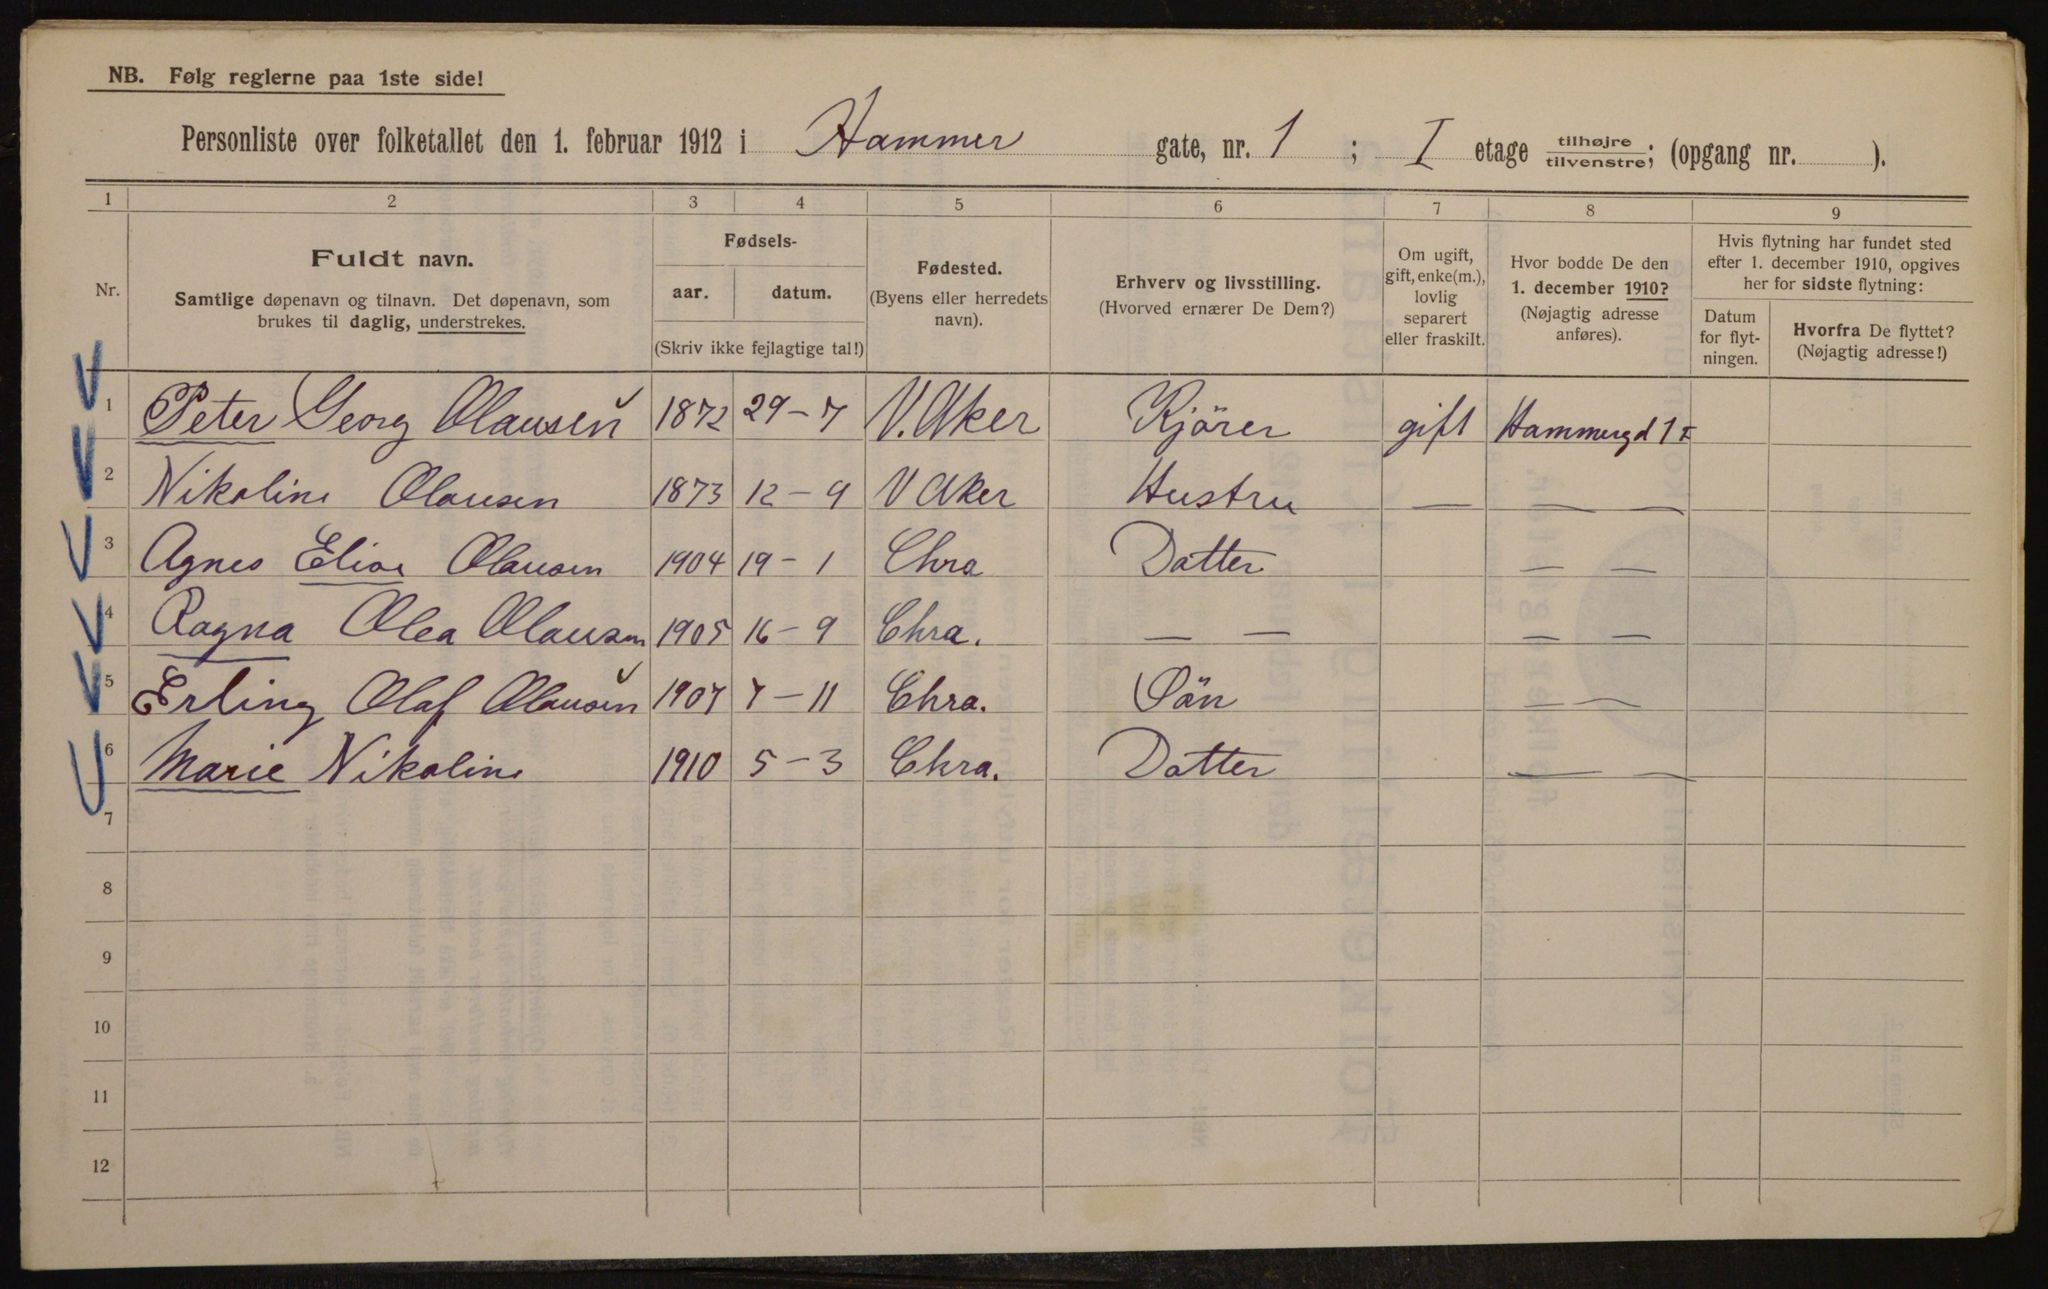 NB. Følg reglerne paa 1ste side!
Personliste over folketallet den 1. februar 1912 i Hammer gate, nr. 1 ; I etage tilhøjre tilvenstre; (opgang nr. ).
1 2 3 4 5 6 7 8 9
Nr.
Fuldt navn.
Samtlige døpenavn og tilnavn. Det døpenavn, som
brukes til daglig, understrekes.
Fødsels-
aar. datum.
(Skriv ikke fejlagtige tal!)
Fødested.
(Byens eller herredets
navn).
Erhverv og livsstilling.
(Hvorved ernærer De Dem?)
Om ugift,
gift, enke(m.),
lovlig
separert
eller fraskilt.
Hvor bodde De den
1. december 1910?
(Nøjagtig adresse
anføres).
Hvis flytning har fundet sted
efter 1. december 1910, opgives
her for sidste flytning:
Datum
for flyt-
ningen.
Hvorfra De flyttet?
(Nøjagtig adresse!)
1 Peter Georg Olausen 1872 29-7 V. Aker Kjörer gift Hammergd 1 I
2 Nikoline Olausen 1873 12-9 V Aker Hustru — — —
3 Agnes Elise Olausen 1904 19-1 Chra Datter — —
4 Ragna Olea Olausen 1905 16-9 Chra. — — — —
5 Erling Olaf Olausen 1907 7-11 Chra. Sön — —
6 Marie Nikoline 1910 5-3 Chra. Datter — —
7
8
9
10
11
12